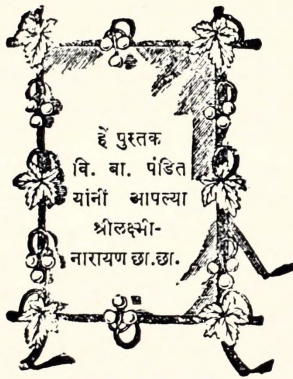 हें पुस्तक
वि. बा. पंडित
यांनीं आपल्या
श्रीलक्ष्मी-
नारायण छा.छा.